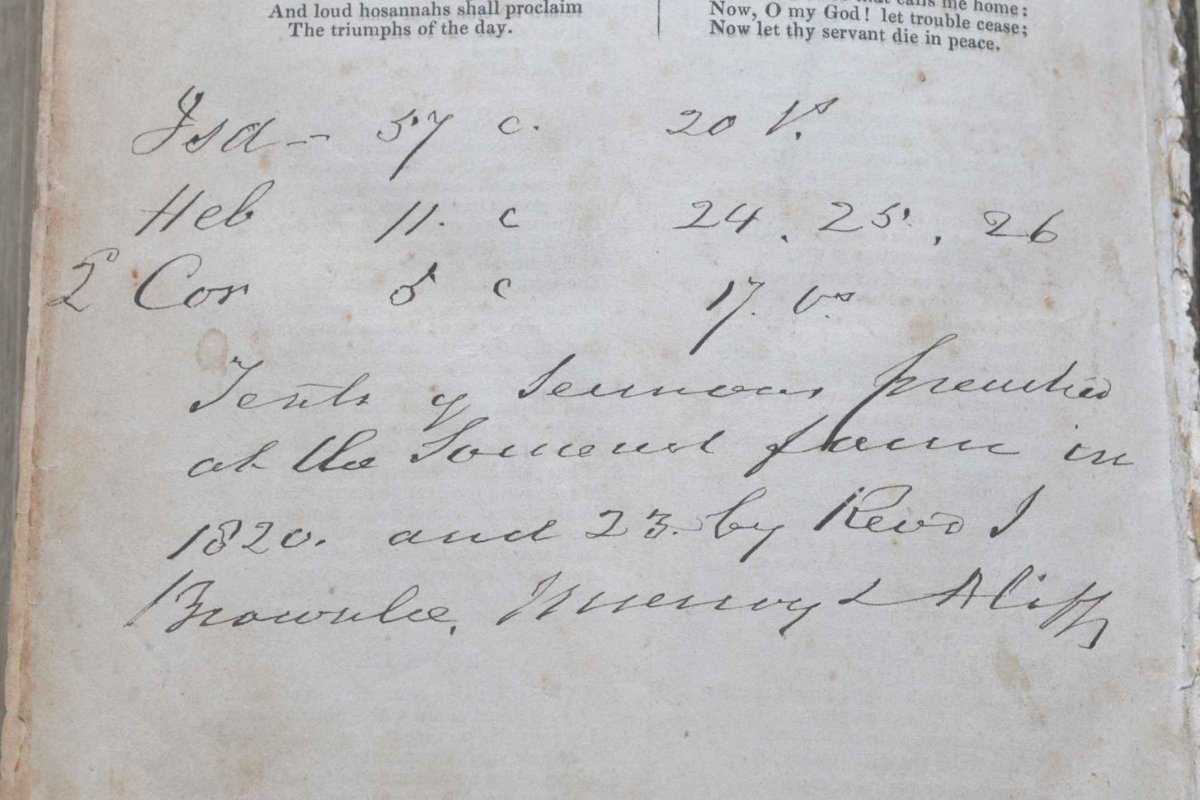 And loud hosannahs shall proclaim
The triumphs of the day.
that calls me home:
Now, O my God! let trouble cease;
Now let thy servant die in peace.
Isa - 57 c. 20 Vs.
Heb 11. c 24, 25, 26
2 Cor 5 c 17. vs
Texts of Sermons preached
at the Somerset farm in
1820. and 23. by Revd J
Brownlee, &